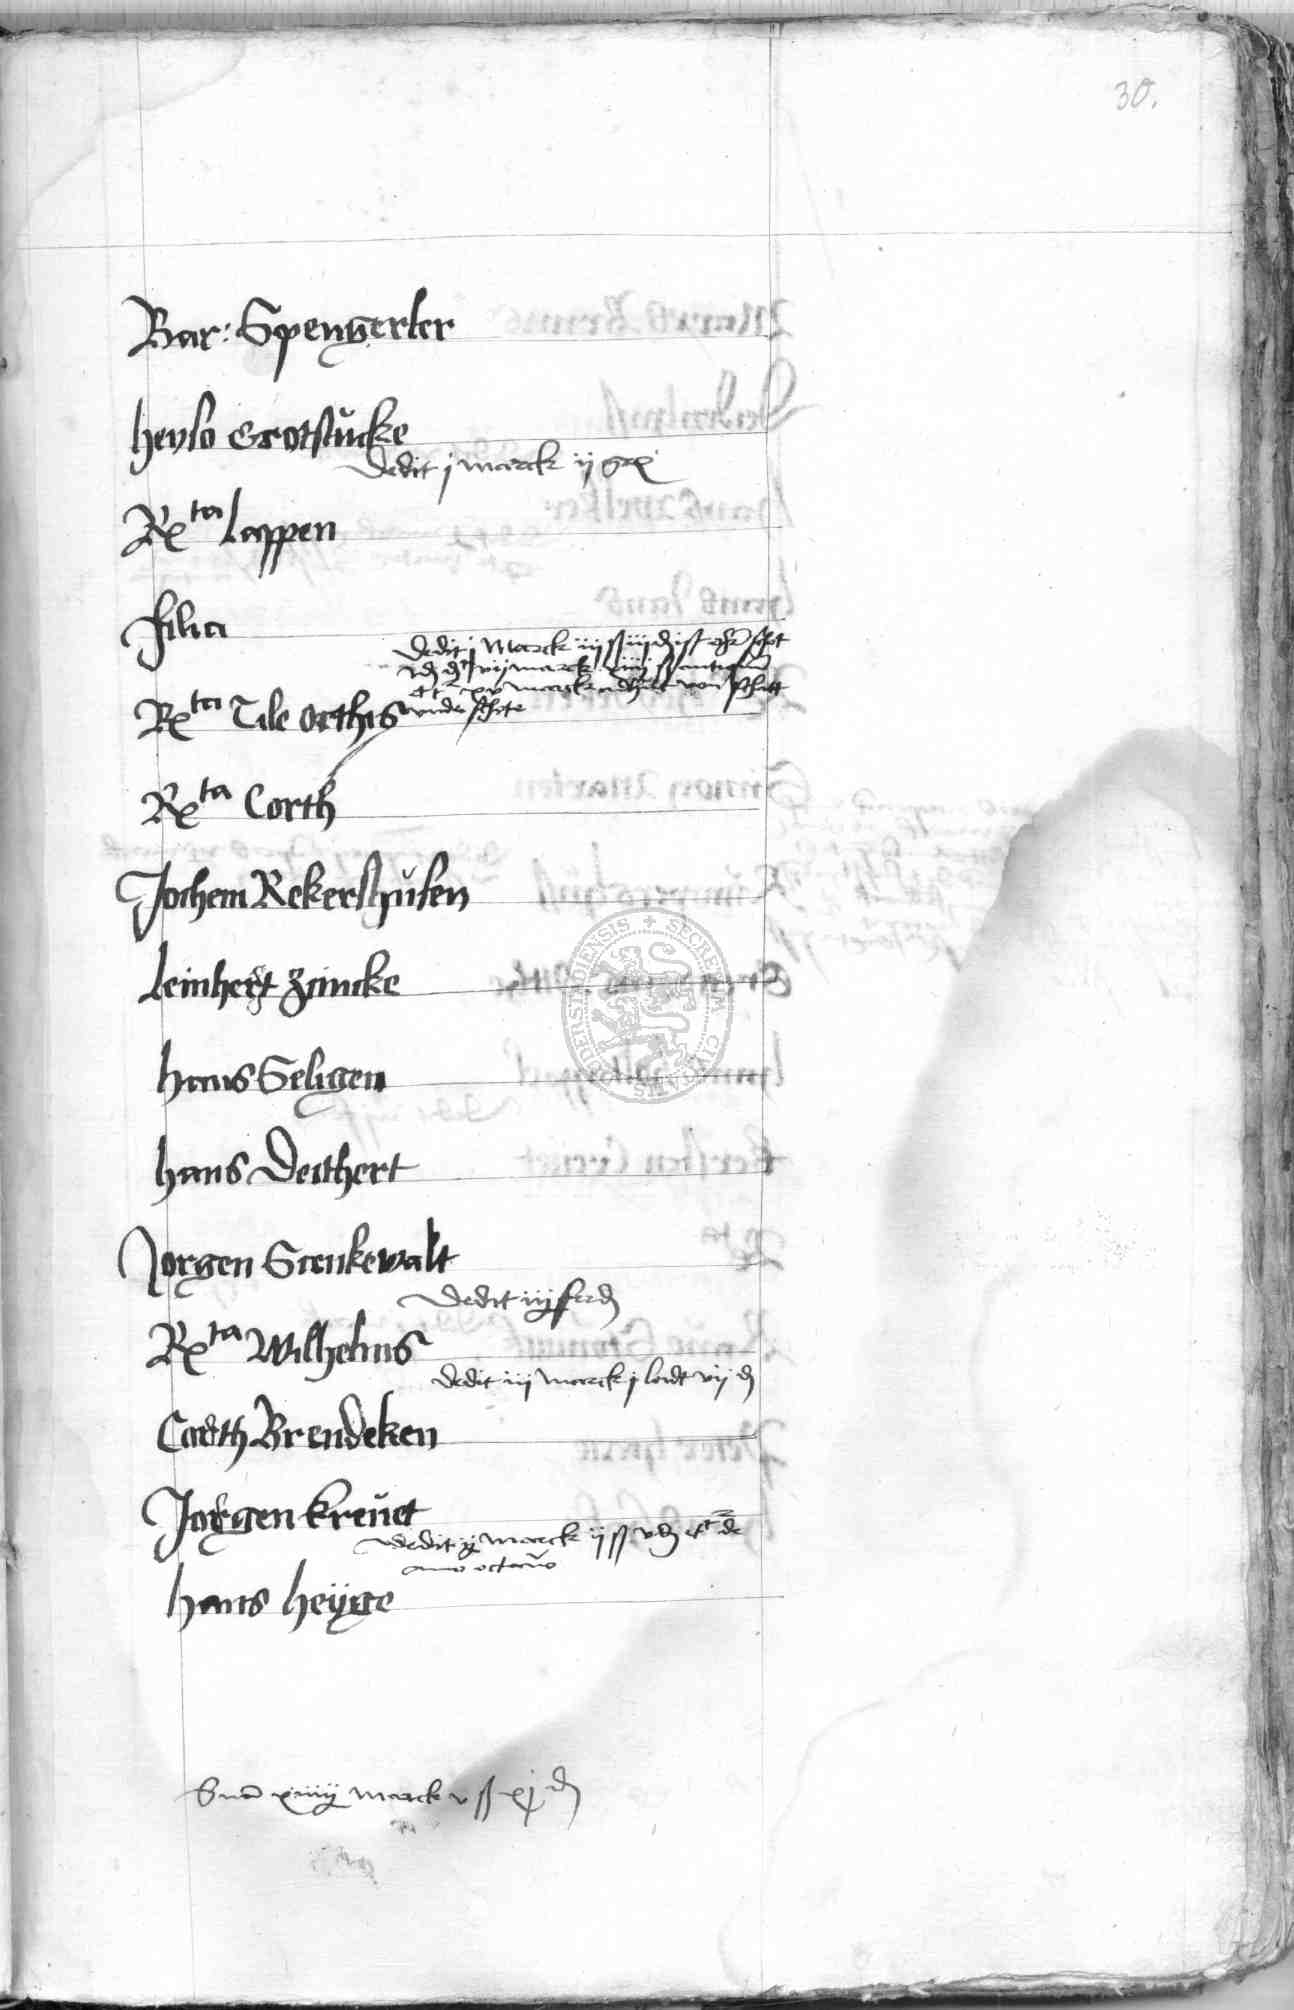 30.
Bar: Spengerler
Heyso Grotstůcke
Dedit j marck ij
Rx^ta Lappen
filia
Dedit j Marck iiij ß iij
vij marck
xv marck von
Rx^ta Tile Orthes
Rx^ta Corth
Jochem Rekershůsen
Leinhert Zimcke
Hans Seligen
Hans Deithert
Jorgen Senkewalt
Dedit iij ferd
Rx^ta Wilhelms
Dedit iij marck j lodt vij d
Corth Brendeken
Jorgen Kreůet
dedit ij marck ij ß v d et de
anno octauo
Hans Heyge
marck v ß xj d
SECRETUM CIVITATIS